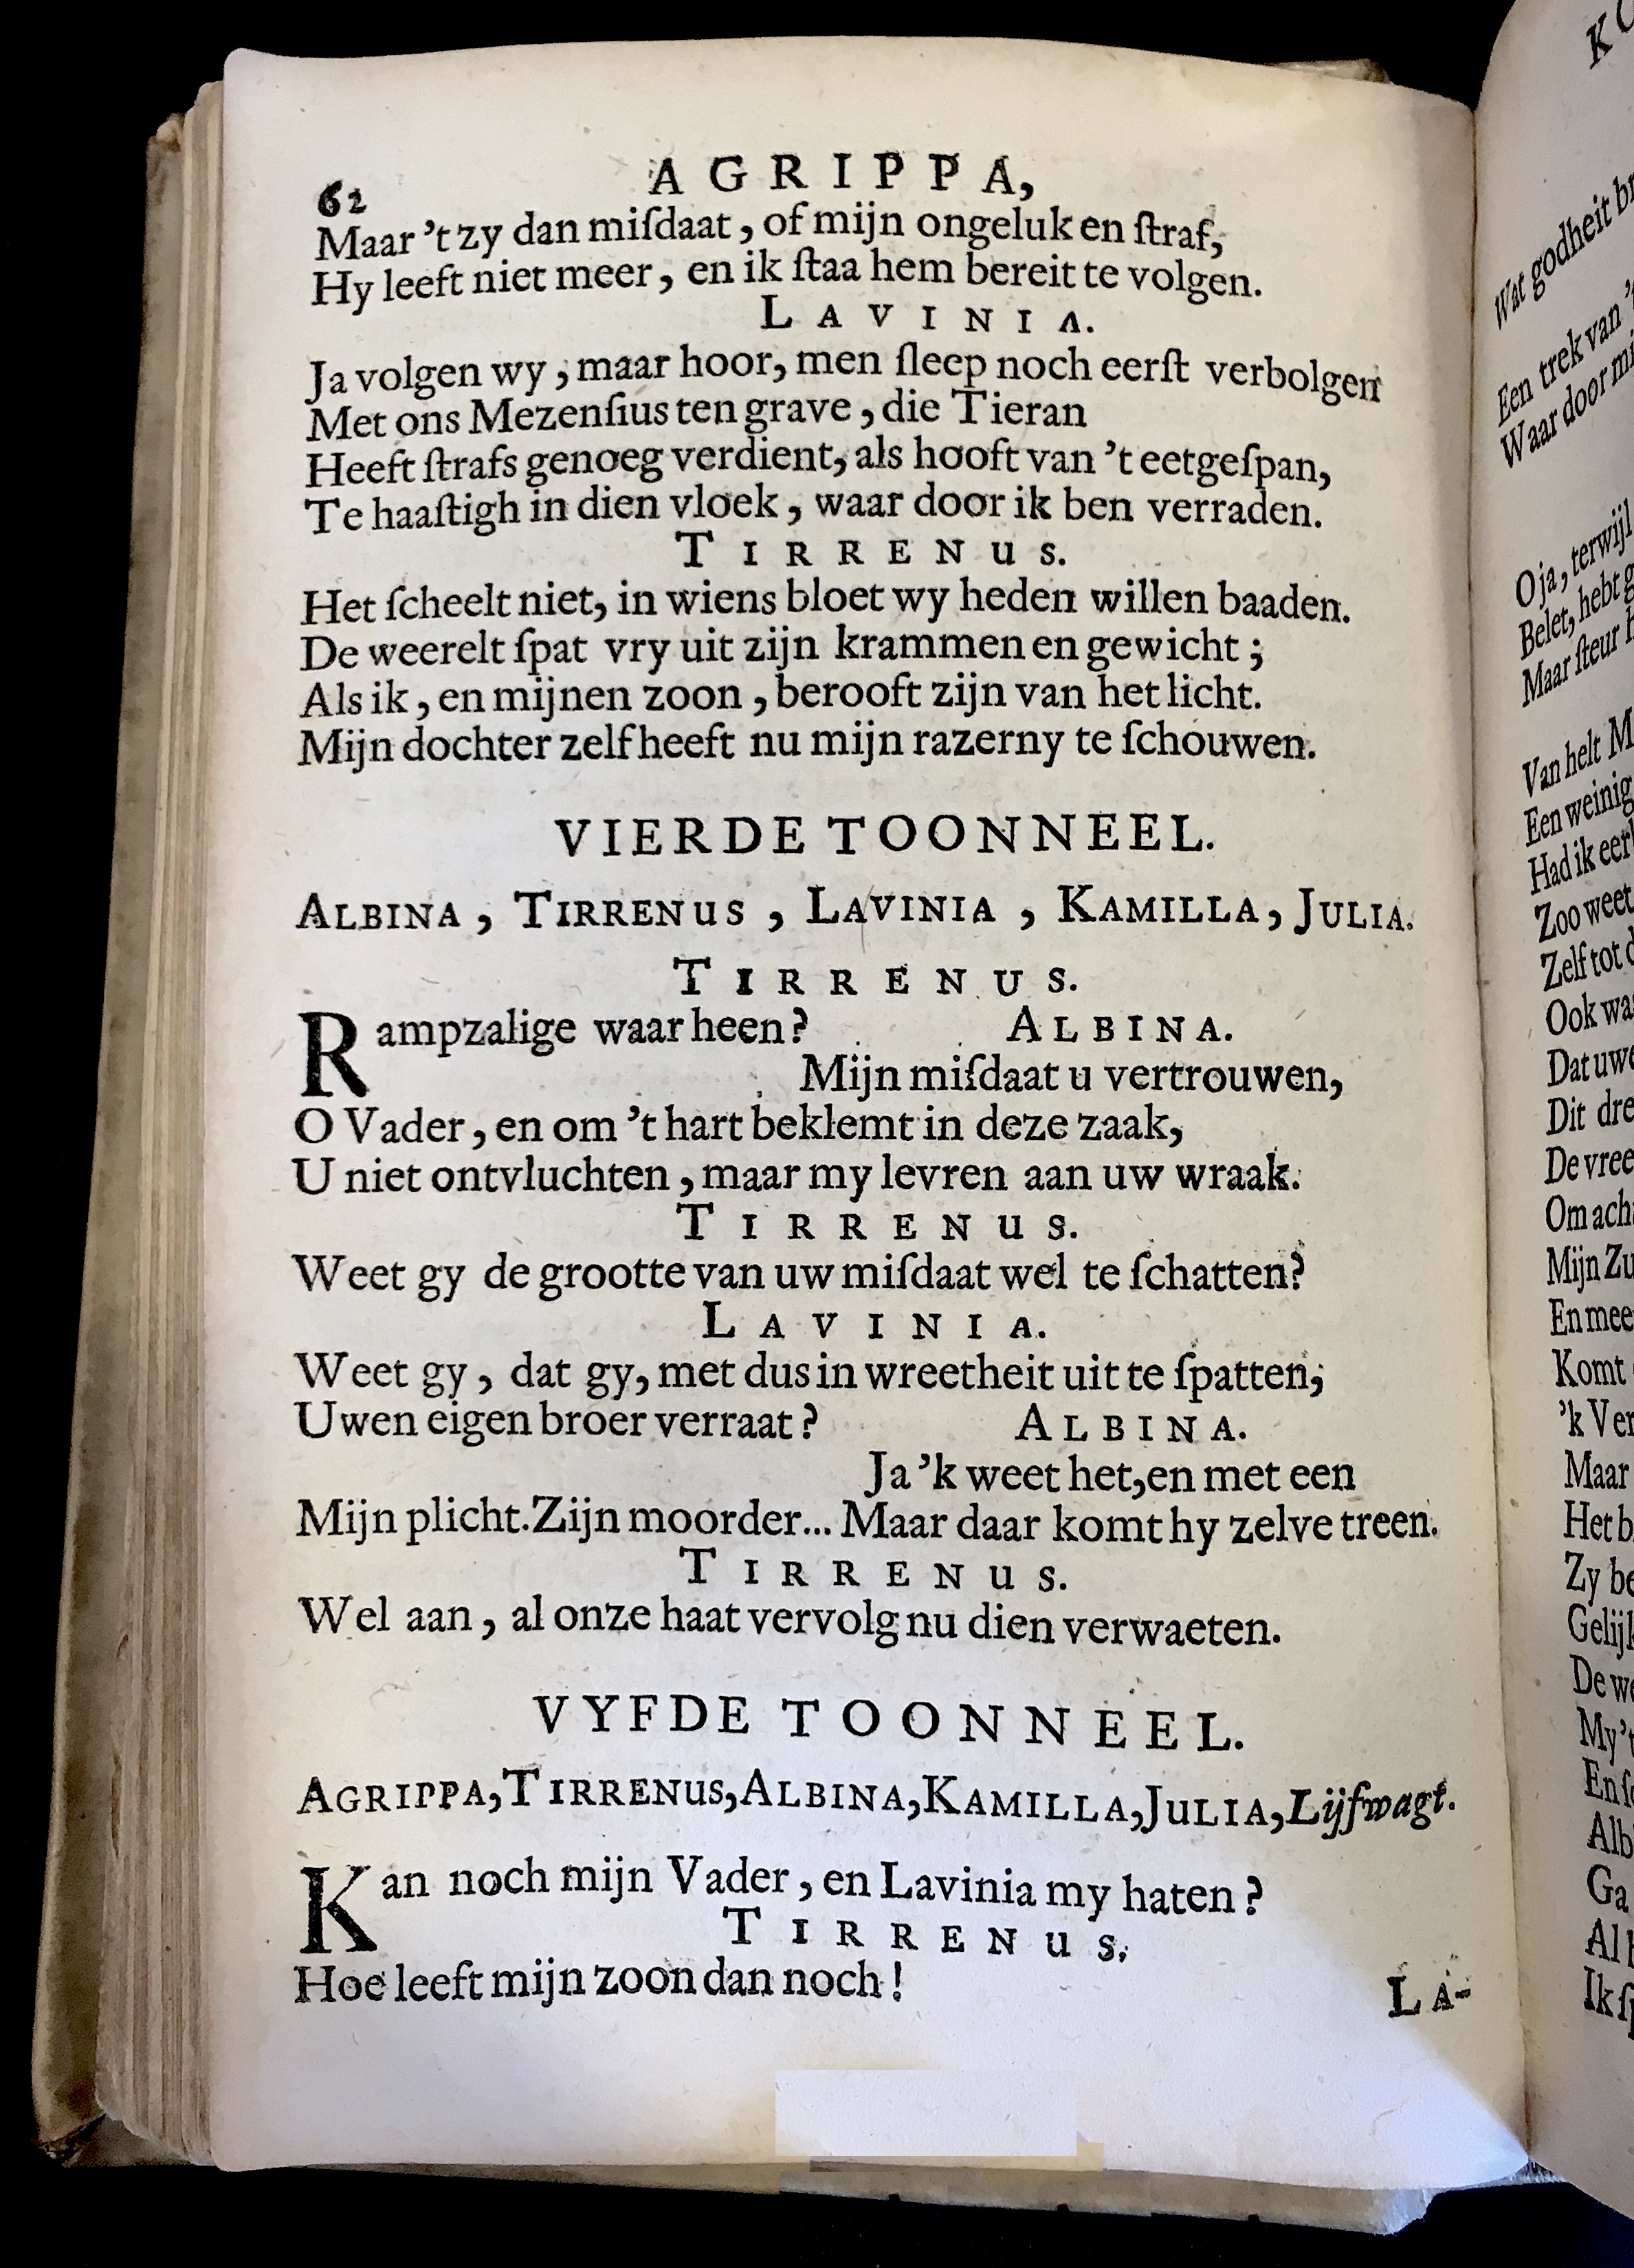 62 AGRIPPA,
Maar 't zy dan miſdaat, of mijn ongeluk en ſtraf,
Hy leeft niet meer, en ik ſtaa hem bereit te volgen.
LAVINIA.
Ja volgen wy, maar hoor, men ſleep noch eerſt verbolgen
Met ons Mezenſius ten grave, die Tieran
Heeft ſtrafs genoeg verdient, als hooft van 't eetgeſpan,
Te haaſtigh in dien vloek, waar door ik ben verraden.
TIRRENUS.
Het ſcheelt niet, in wiens bloet wy heden willen baaden.
De weerelt ſpat vry uit zijn krammen en gewicht;
Als ik, en mijnen zoon, berooft zijn van het licht.
Mijn dochter zelf heeft nu mijn razerny te ſchouwen.
VIERDE TOONNEEL.
ALBINA, TIRRENUS, LAVINIA, KAMILLA, JULIA.
TIRRENUS.
Rampzalige waar heen? ALBINA.
Mijn miſdaat u vertrouwen,
O Vader, en om 't hart beklemt in deze zaak,
U niet ontvluchten, maar my levren aan uw wraak.
TIRRENUS.
Weet gy de grootte van uw miſdaat wel te ſchatten?
LAVINIA.
Weet gy, dat gy, met dus in wreetheit uit te ſpatten,
Uwen eigen broer verraat? ALBINA.
Ja 'k weet het, en met een
Mijn plicht. Zijn moorder... Maar daar komt hy zelve treen.
TIRRENUS.
Wel aan, al onze haat vervolg nu dien verwaeten.
VYFDE TOONNEEL.
AGRIPPA, TIRRENUS, ALBINA, KAMILLA, JULIA, Lijfwagt.
Kan noch mijn Vader, en Lavinia my haten?
TIRRENUS.
Hoe leeft mijn zoon dan noch!
LA-
Wat godheit
Een trek van
Waar door
O ja, terwijl
Belet, hebt
Maar ſteur
Van helt
Een weinig
Had ik
Zoo weet
Zelf tot
Ook
Dat
Dit
De
Om
Mijn
En
Komt
'k
Maar
Het
Zy
Gelijk
De
My
Ga
Al
Ik